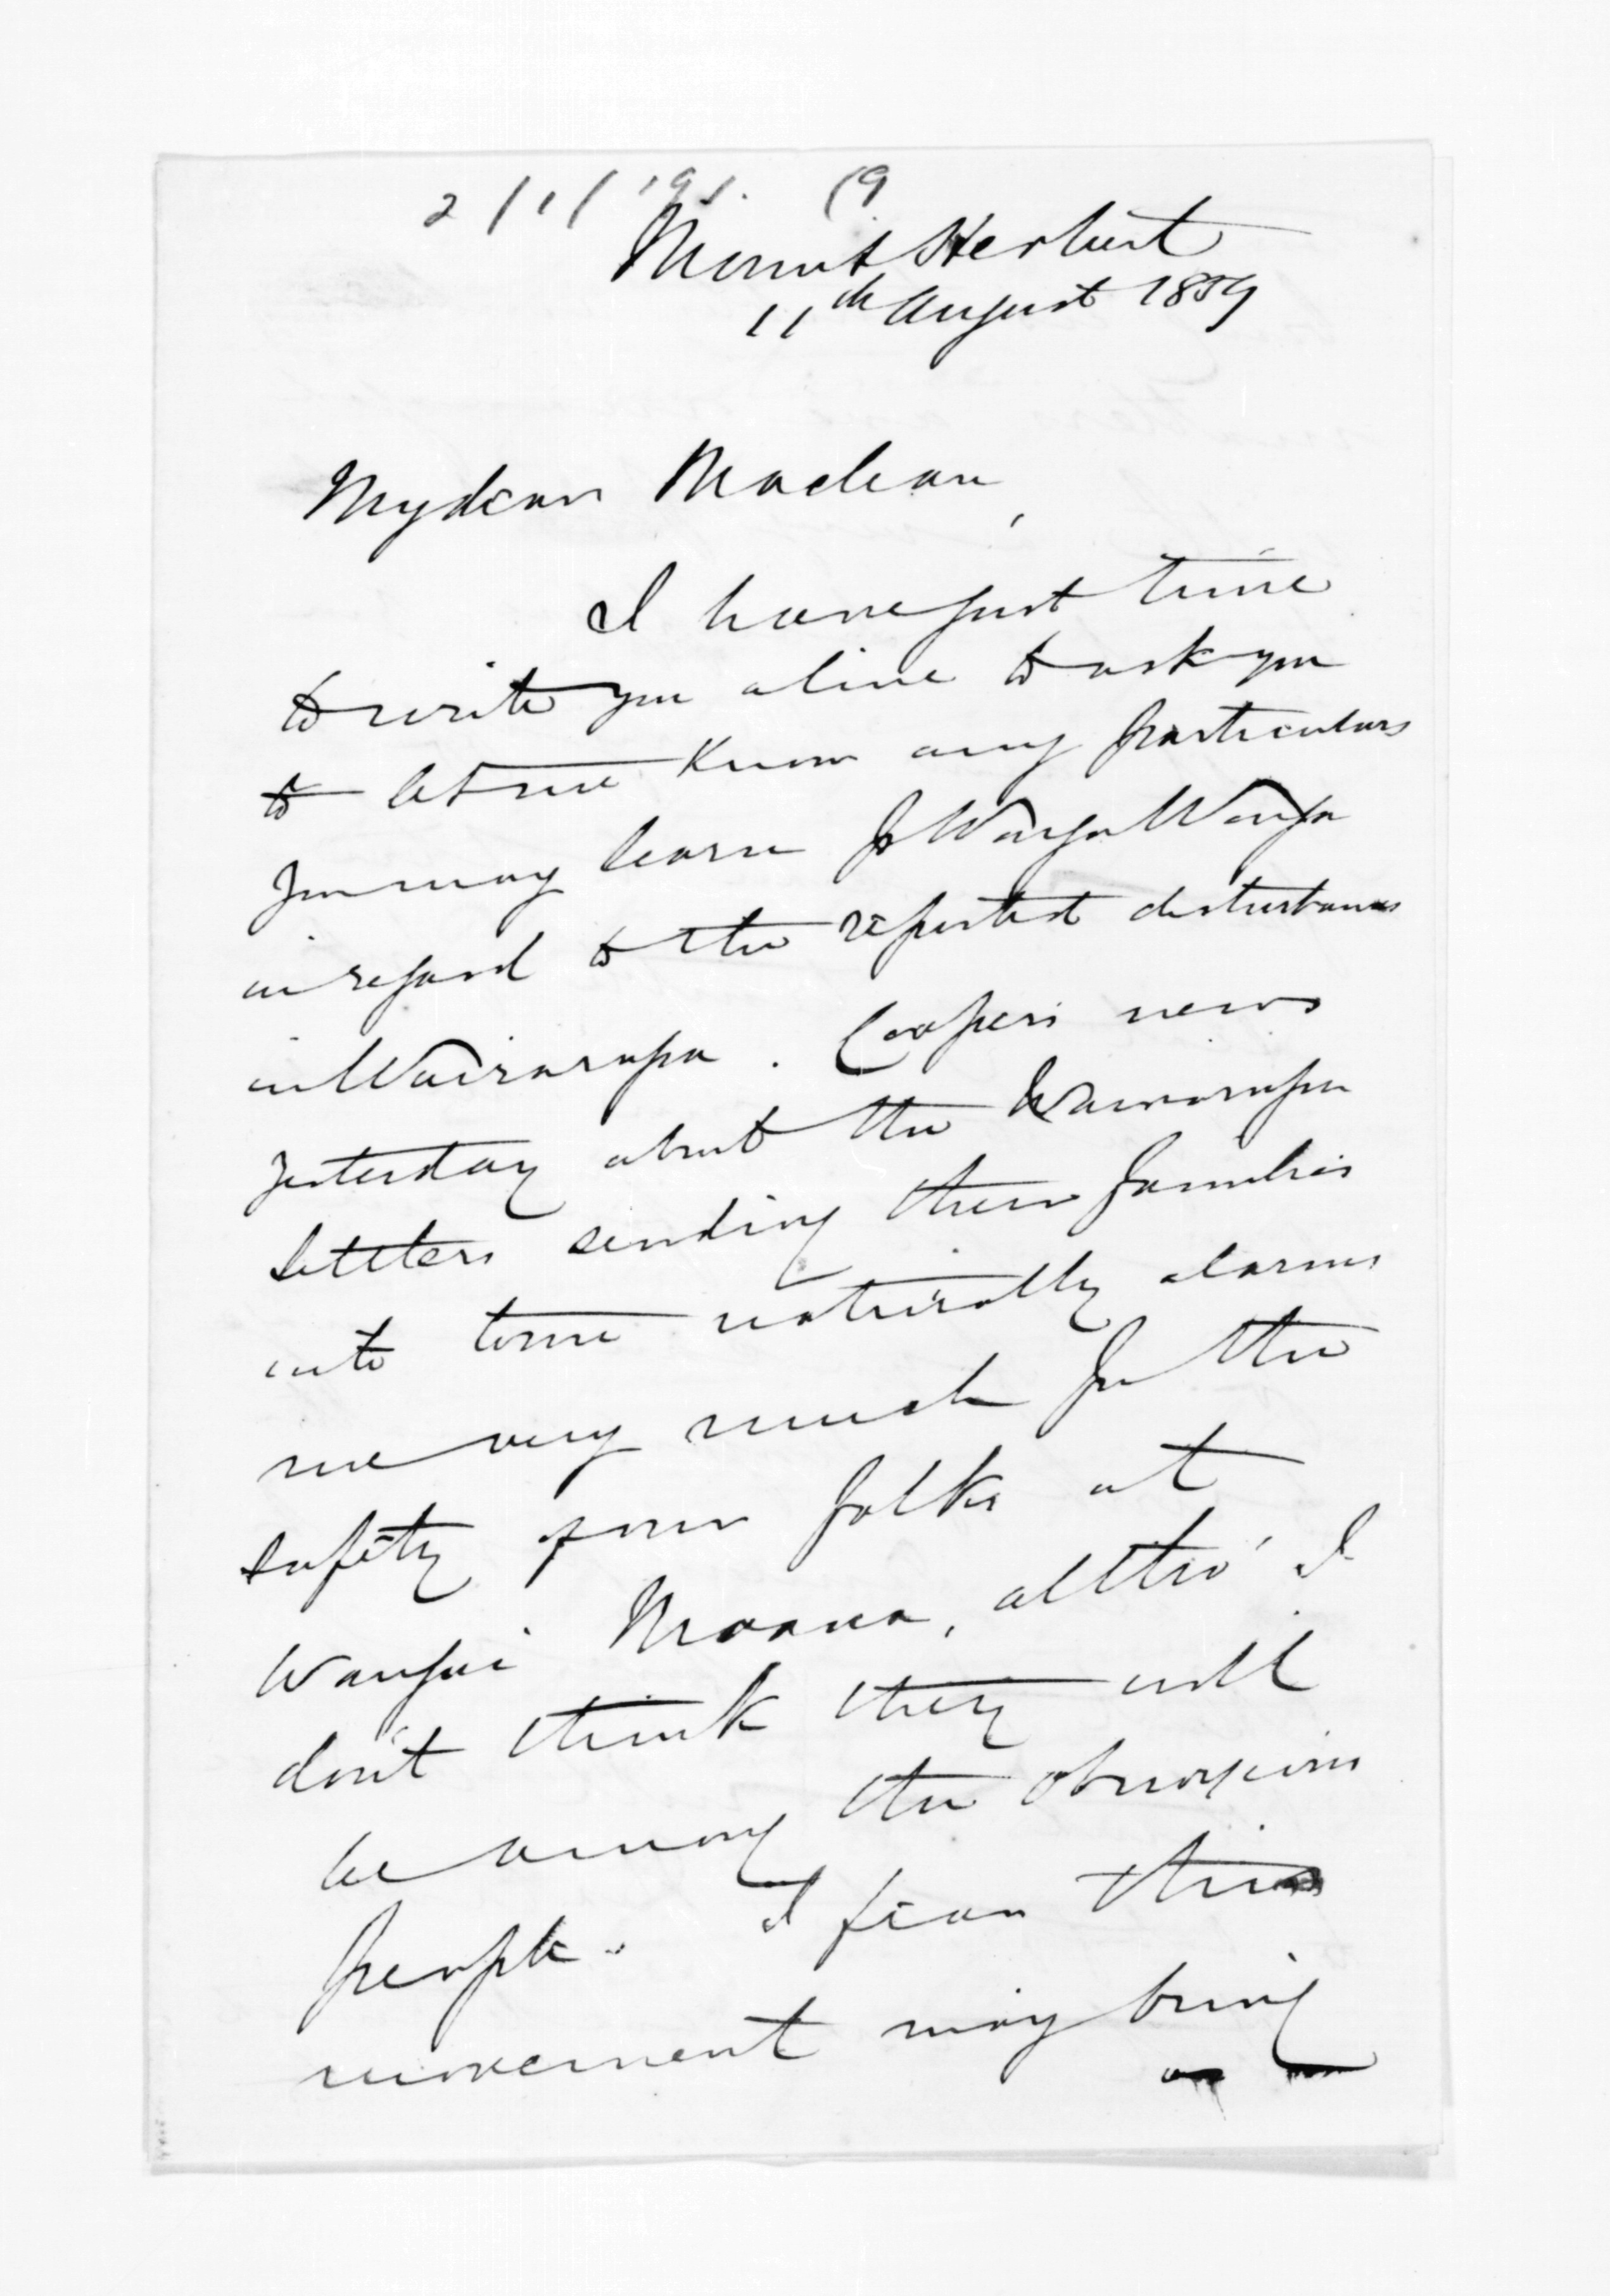 2/1/'91. (9
Mount Herbert
11th August 1859
My dear Maclean,
I have just time
to write you a line to ask you
to let me know any particulars
you may learn Wanga Wanga
in regard to the reported disturbances
in Wairarapa. Coopers news
yesterday about the Wairarapa
Settlers sending their families
into town naturally alarms
me very much for the
safety of our folks at
Wangai Moana, altho' I
don't think they will
be among the obnoxious
people. I fear this
movement may bring